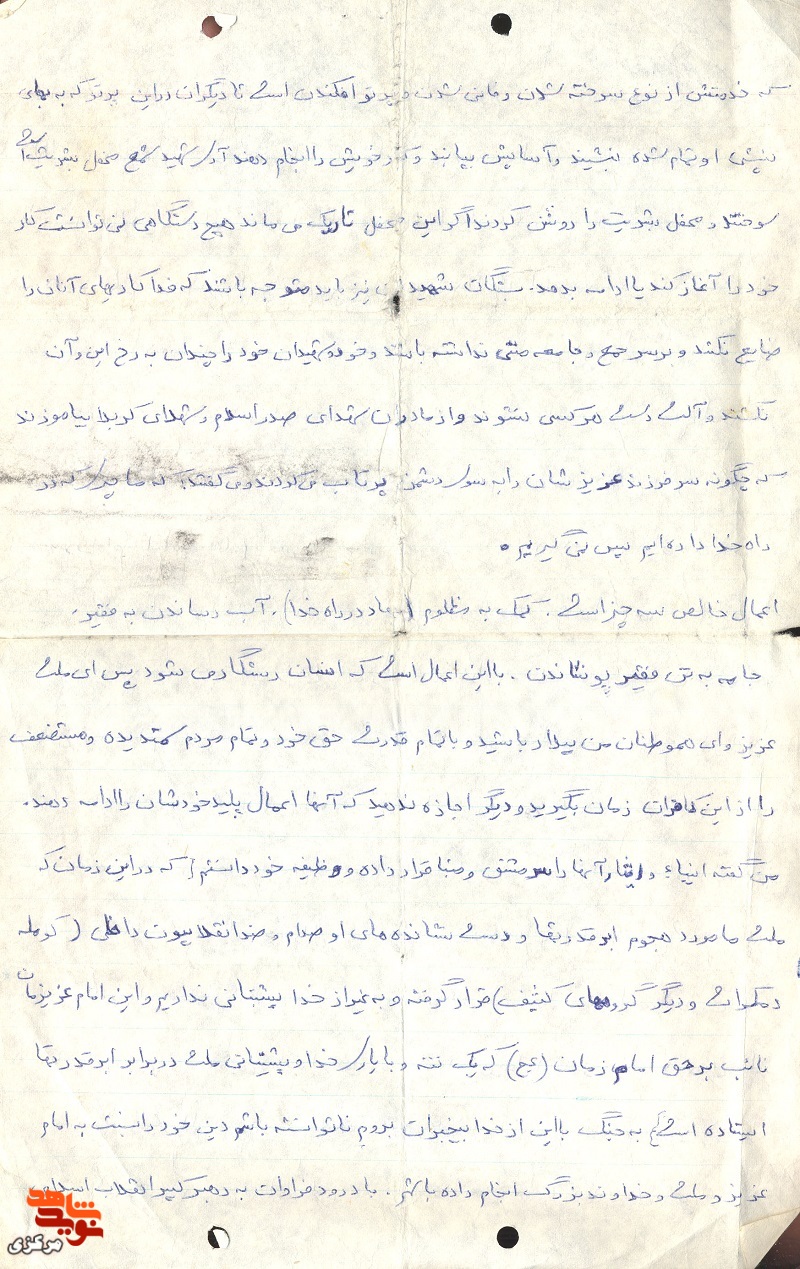 که خدمتش از نوع سوخته شدن و فانی شدن و پرتو افکندن است تا دیگران در این پرتو که به بهای
نیستی او تمام شده بنشینند و آسایش بیابند و کار خویش را انجام دهند آری شهید شمع محفل بشریت است
سوختند و محفل بشریت را روشن کردند اگر این محفل تاریک می ماند هیچ دستگاهی نمی توانست کار
خود را آغاز کند یا ادامه بدهد. بستگان شهیدان نیز باید متوجه باشند که فداکاریهای آنان را
ضایع نکنند و بر سر جمع و جامعه منتی نداشته باشند و خود و شهیدان خود را چندان به رخ این و آن
نکشند و آلت دست هر کسی نشوند و از مادران شهدای صدر اسلام و شهدای کربلا بیاموزند
که چگونه سر فرزند عزیزشان را به سوی دشمن پرتاب می کردند و می گفتند: که ما چیزی که در
راه خدا داده ایم پس نمی گیریم.
اعمال خالص سه چیز است. کمک به مظلوم (جهاد در راه خدا). آب رساندن به فقیر.
جامه به تن فقیر پوشاندن. با این اعمال است که انسان رستگار می شود پس ای ملت
عزیز و ای هموطنان من بیدار باشید و با تمام قدرت حق خود و تمام مردم ستمدیده و مستضعف
را از این کافران زمان بگیرید و دیگر اجازه ندهید که آنها اعمال پلید خودشان را ادامه دهند.
من گفته انبیاء و ایثار آنها را سر مشق و مبنا قرار داده و وظیفه خود دانستم که در این زمان که
ملت ما مورد هجوم ابرقدرتها و دست نشانده های او صدام و ضد انقلابیون داخلی (کومله
دمکرات و دیگر گروههای کثیف) قرار گرفته و به غیر از خدا پشتیبانی نداریم و این امام عزیزمان
نائب بر حق امام زمان (عج) که یک تنه و با یاری خدا و پشتیبانی ملت در برابر ابرقدرتها
ایستاده است به جنگ با این از خدا بیخبران بروم تا توانسته باشم دین خود را نسبت به امام
عزیز و ملت و خداوند بزرگ انجام داده باشم. با درود فراوان به رهبر کبیر انقلاب اسلامی
نوید شاهد
مرکزی